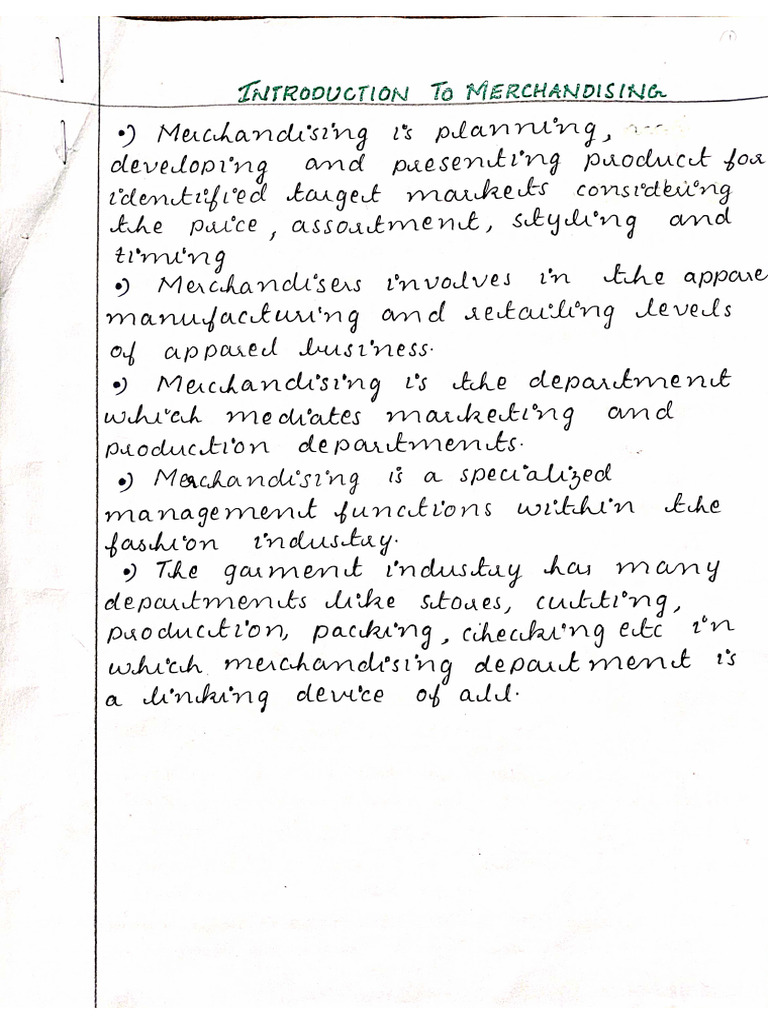 INTRODUCTION TO MERCHANDISING
•) Merchandising is planning,
developing and presenting product for
identified target markets considering
the price, assortment, styling and
timing
•) Merchandisers involves in the appare
manufacturing and retailing levels
of apparel business.
•) Merchandising is the department
which mediates marketing and
production departments.
•) Merchandising is a specialized
management functions within the
fashion industry.
•) The garment industry has many
departments like stores, cutting,
production, packing, checking etc in
which merchandising department is
a linking device of all.